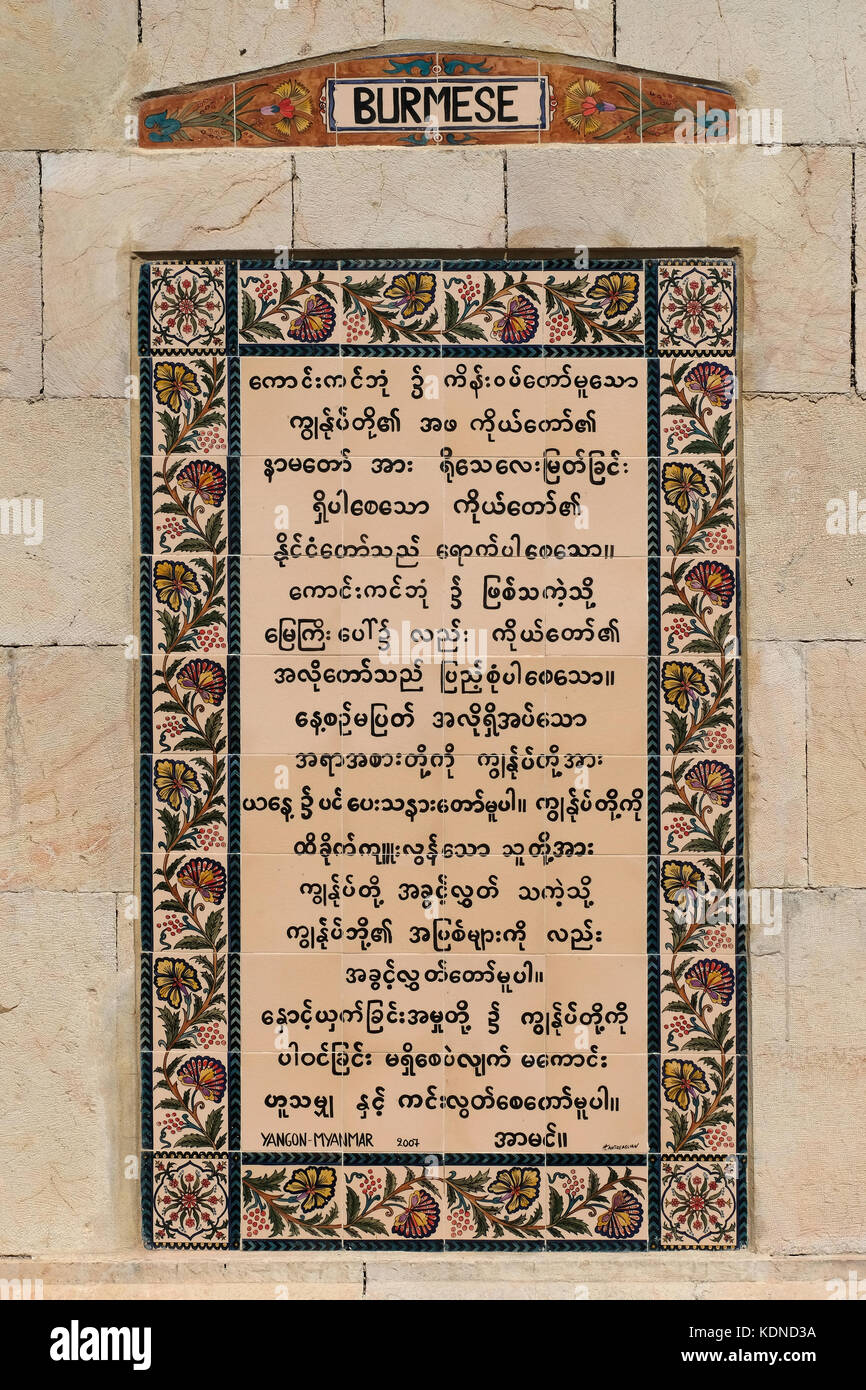 BURMESE
ကောင်းကင်ဘုံ ၌ ကိန်းဝပ်တော်မူသော
ကျွန်ုပ်တို့၏ အဖ ကိုယ်တော်၏
နာမတော် အား ရိုသေလေးမြတ်ခြင်း
ရှိပါစေသော ကိုယ်တော်၏
နိုင်ငံတော်သည် ရောက်ပါစေသော။
ကောင်းကင်ဘုံ ၌ ဖြစ်သကဲ့သို့
မြေကြီးပေါ်၌ လည်း ကိုယ်တော်၏
အလိုတော်သည် ပြည့်စုံပါစေသော။
နေ့စဉ်မပြတ် အလိုရှိအပ်သော
အရာအစားတို့ကို ကျွန်ုပ်တို့အား
ယနေ့ ၌ ပင် ပေးသနားတော်မူပါ။ ကျွန်ုပ်တို့ကို
ထိခိုက်ကျူးလွန်သော သူတို့အား
ကျွန်ုပ်တို့ အခွင့်လွှတ် သကဲ့သို့
ကျွန်ုပ်ဘို့၏ အပြစ်များကို လည်း
အခွင့်လွှတ်တော်မူပါ။
နှောင့်ယှက်ခြင်းအမှုတို့ ၌ ကျွန်ုပ်တို့ကို
ပါဝင်ခြင်း မရှိစေပဲလျက် မကောင်း
ဟူသမျှ နှင့် ကင်းလွတ်စေတော်မူပါ။
YANGON-MYANMAR 2007 အာမင်။
alamy
Image ID: KDND3A
www.alamy.com